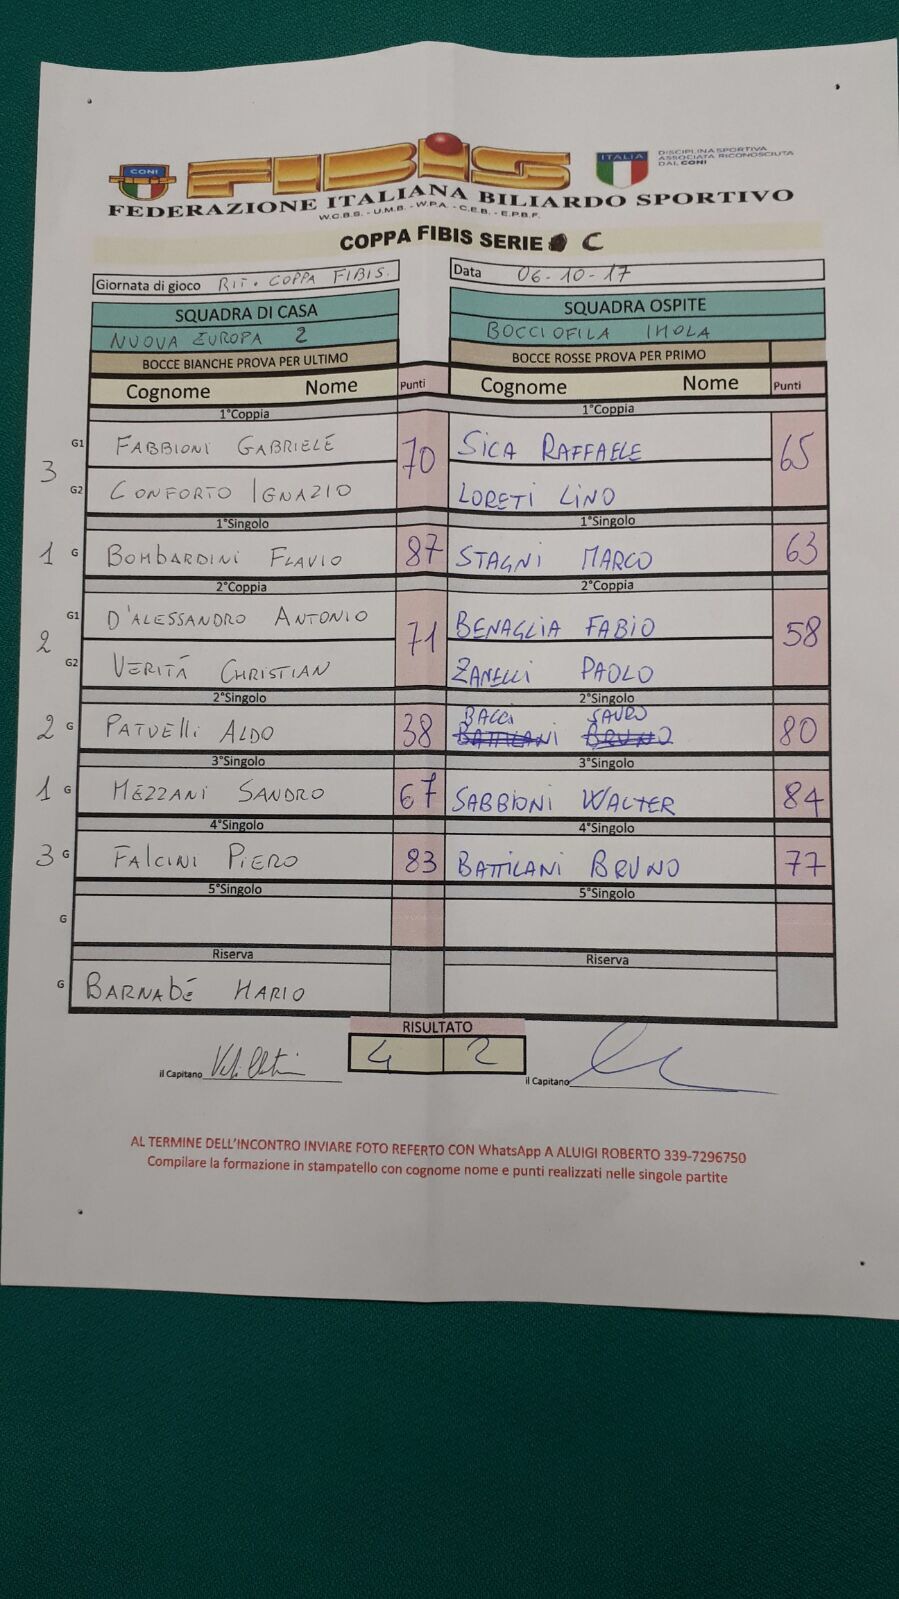 CONI
FIBIS
ITALIA
DISCIPLINA SPORTIVA
ASSOCIATA RICONOSCIUTA
DAL CONI
FEDERAZIONE ITALIANA BILIARDO SPORTIVO
W.C.B.S. - U.M.B. - W.P.A. - C.E.B. - E.P.B.F.
COPPA FIBIS SERIE C
Giornata di gioco RIT. COPPA FIBIS.
Data 06-10-17
SQUADRA DI CASA
SQUADRA OSPITE
NUOVA EUROPA 2
BOCCIOFILA IMOLA
BOCCE BIANCHE PROVA PER ULTIMO
BOCCE ROSSE PROVA PER PRIMO
Cognome Nome Punti Cognome Nome Punti
1°Coppia 1°Coppia
3 G1 FABBIONI GABRIELE 70 SICA RAFFAELE 65
G2 CONFORTO IGNAZIO LORETI LINO
1°Singolo 1°Singolo
1 G BOMBARDINI FLAVIO 87 STAGNI MARCO 63
2°Coppia 2°Coppia
2 G1 D'ALESSANDRO ANTONIO 71 BENAGLIA FABIO 58
G2 VERITÁ CHRISTIAN ZANELLI PAOLO
2°Singolo 2°Singolo
BACCI SAURO
2 G PATUELLI ALDO 38 BATTILANI BRUNO 80
3°Singolo 3°Singolo
1 G MEZZANI SANDRO 67 SABBIONI WALTER 84
4°Singolo 4°Singolo
3 G FALCINI PIERO 83 BATTILANI BRUNO 77
5°Singolo 5°Singolo
G
Riserva Riserva
G BARNABÉ MARIO
RISULTATO
4 2
il Capitano
il Capitano
AL TERMINE DELL'INCONTRO INVIARE FOTO REFERTO CON WhatsApp A ALUIGI ROBERTO 339-7296750
Compilare la formazione in stampatello con cognome nome e punti realizzati nelle singole partite